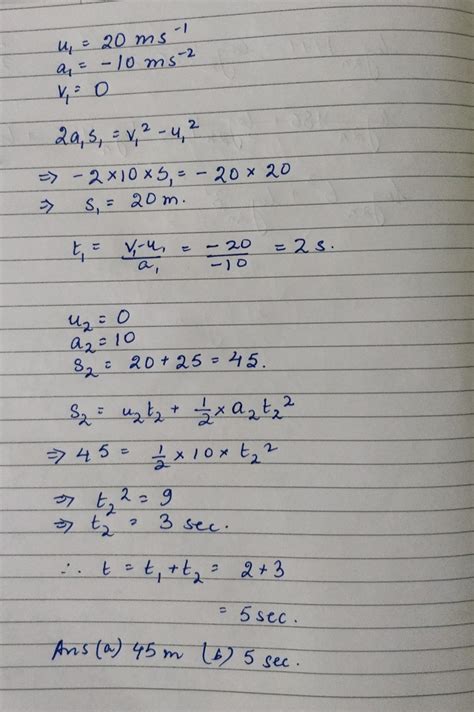 u₁ = 20 ms⁻¹
a₁ = -10 ms⁻²
v₁ = 0
2a₁s₁ = v₁² - u₁²
⇒ -2×10×s₁ = -20 × 20
⇒ s₁ = 20 m.
t₁ = (v₁-u₁)/a₁ = -20/-10 = 2 s.
u₂ = 0
a₂ = 10
s₂ = 20 + 25 = 45.
s₂ = u₂t₂ + 1/2 × a₂t₂²
⇒ 45 = 1/2 × 10 × t₂²
⇒ t₂² = 9
⇒ t₂ = 3 sec.
∴ t = t₁ + t₂ = 2 + 3
= 5 sec.
Ans (a) 45 m (b) 5 sec.